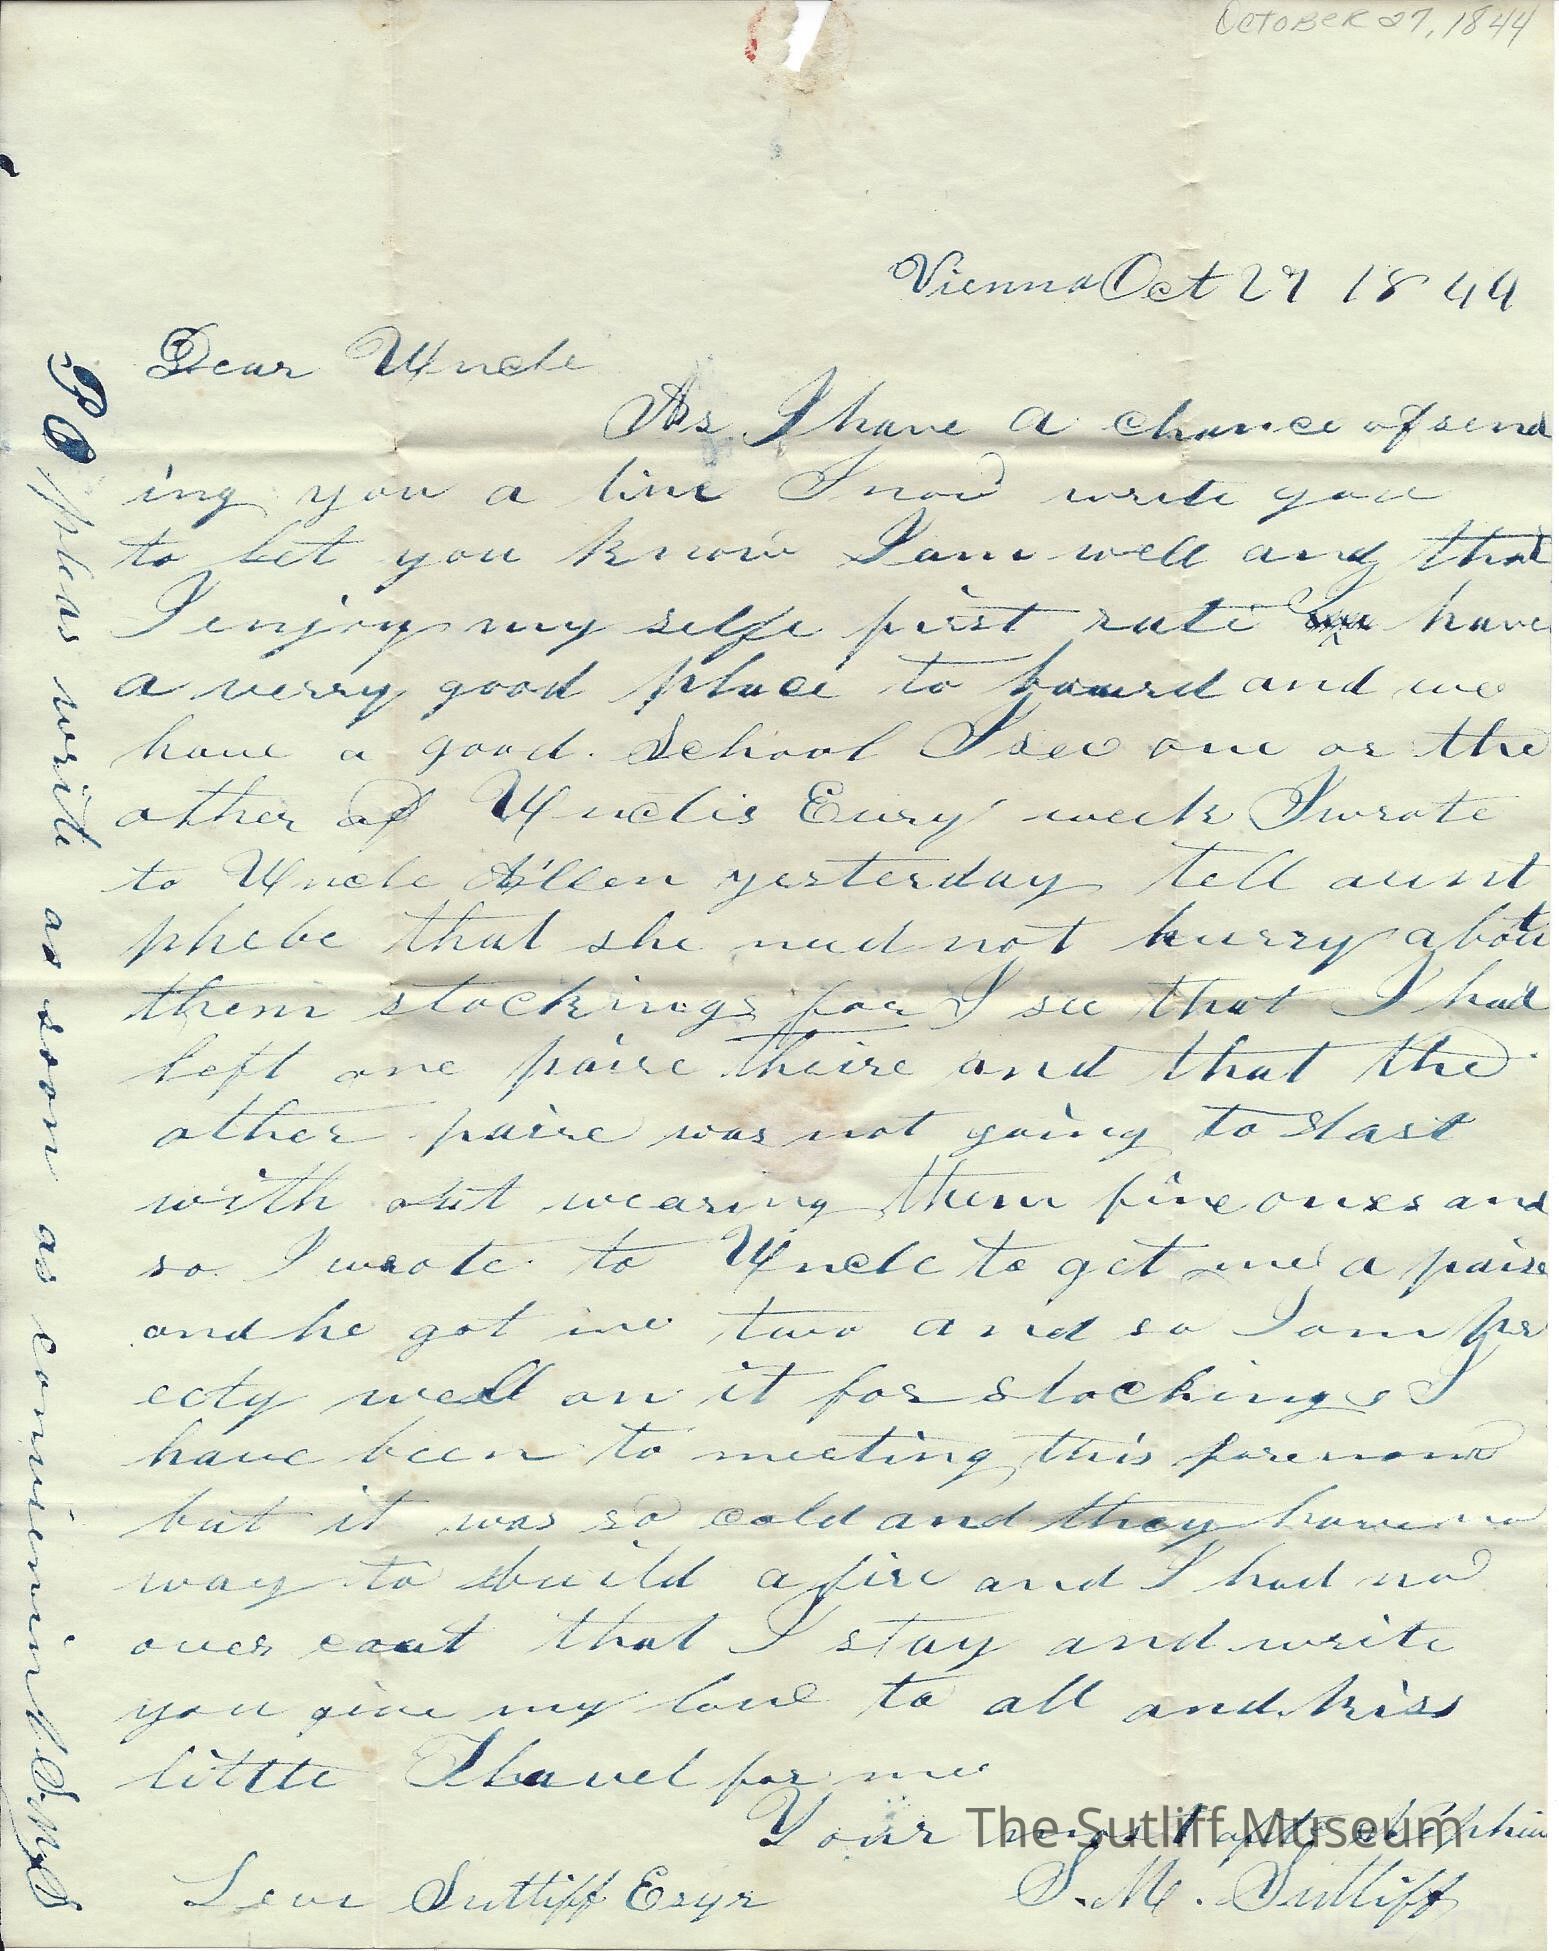 OCTOBER 27, 1844
Vienna Oct 27 1844
Dear Uncle
As I have a chance of send
ing you a line I now write you
to let you know I am well and that
I enjoy my selfe first rate have
a verry good place to board and we
have a good School I see one or the
other of Unclis Evry week I wrote
to Uncle Allen yesterday tell aunt
phebe that she need not hurry about
them stockings for I see that I had
left one paire theire and that the
other paire was not going to last
with out wearing them fine ones and
so I wrote to Uncle to get me a paire
and he got me two and so I am pr
ecty well on it for stockings I
have been to meeting this forenoon
but it was so cold and they have no
way to build a fire and I had no
over coat that I stay and write
you give my love to all and kiss
little Phavel for me
Your most afte
S. M. Sutliff
Levi Sutliff Esqr
P O pleas write as soon as convienint S M S
The Sutliff Museum